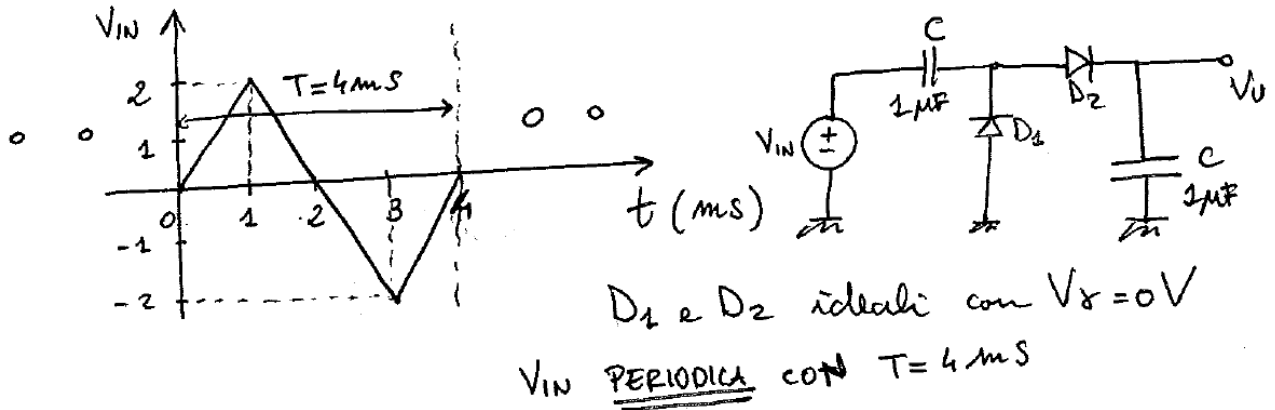 V_IN
2
T=4ms
1
0
1
2
3
4
t (ms)
-1
-2
C
1μF
D_2
V_U
V_IN
±
D_1
C
1μF
D_1 e D_2 ideali con Vγ=0V
V_IN PERIODICA CON T=4ms